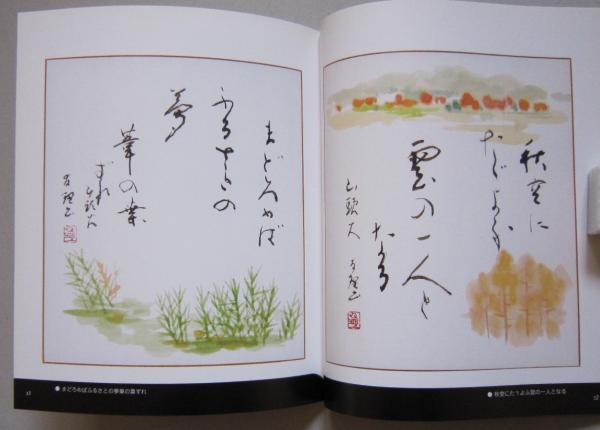 秋空に
たゞよふ
雲の一人と
なる
山頭火
● 秋空にたゞよふ雲の一人となる
まどろめば
ふるさとの
夢
葦の葉
ずれ
山頭火
● まどろめばふるさとの夢葦の葉ずれ